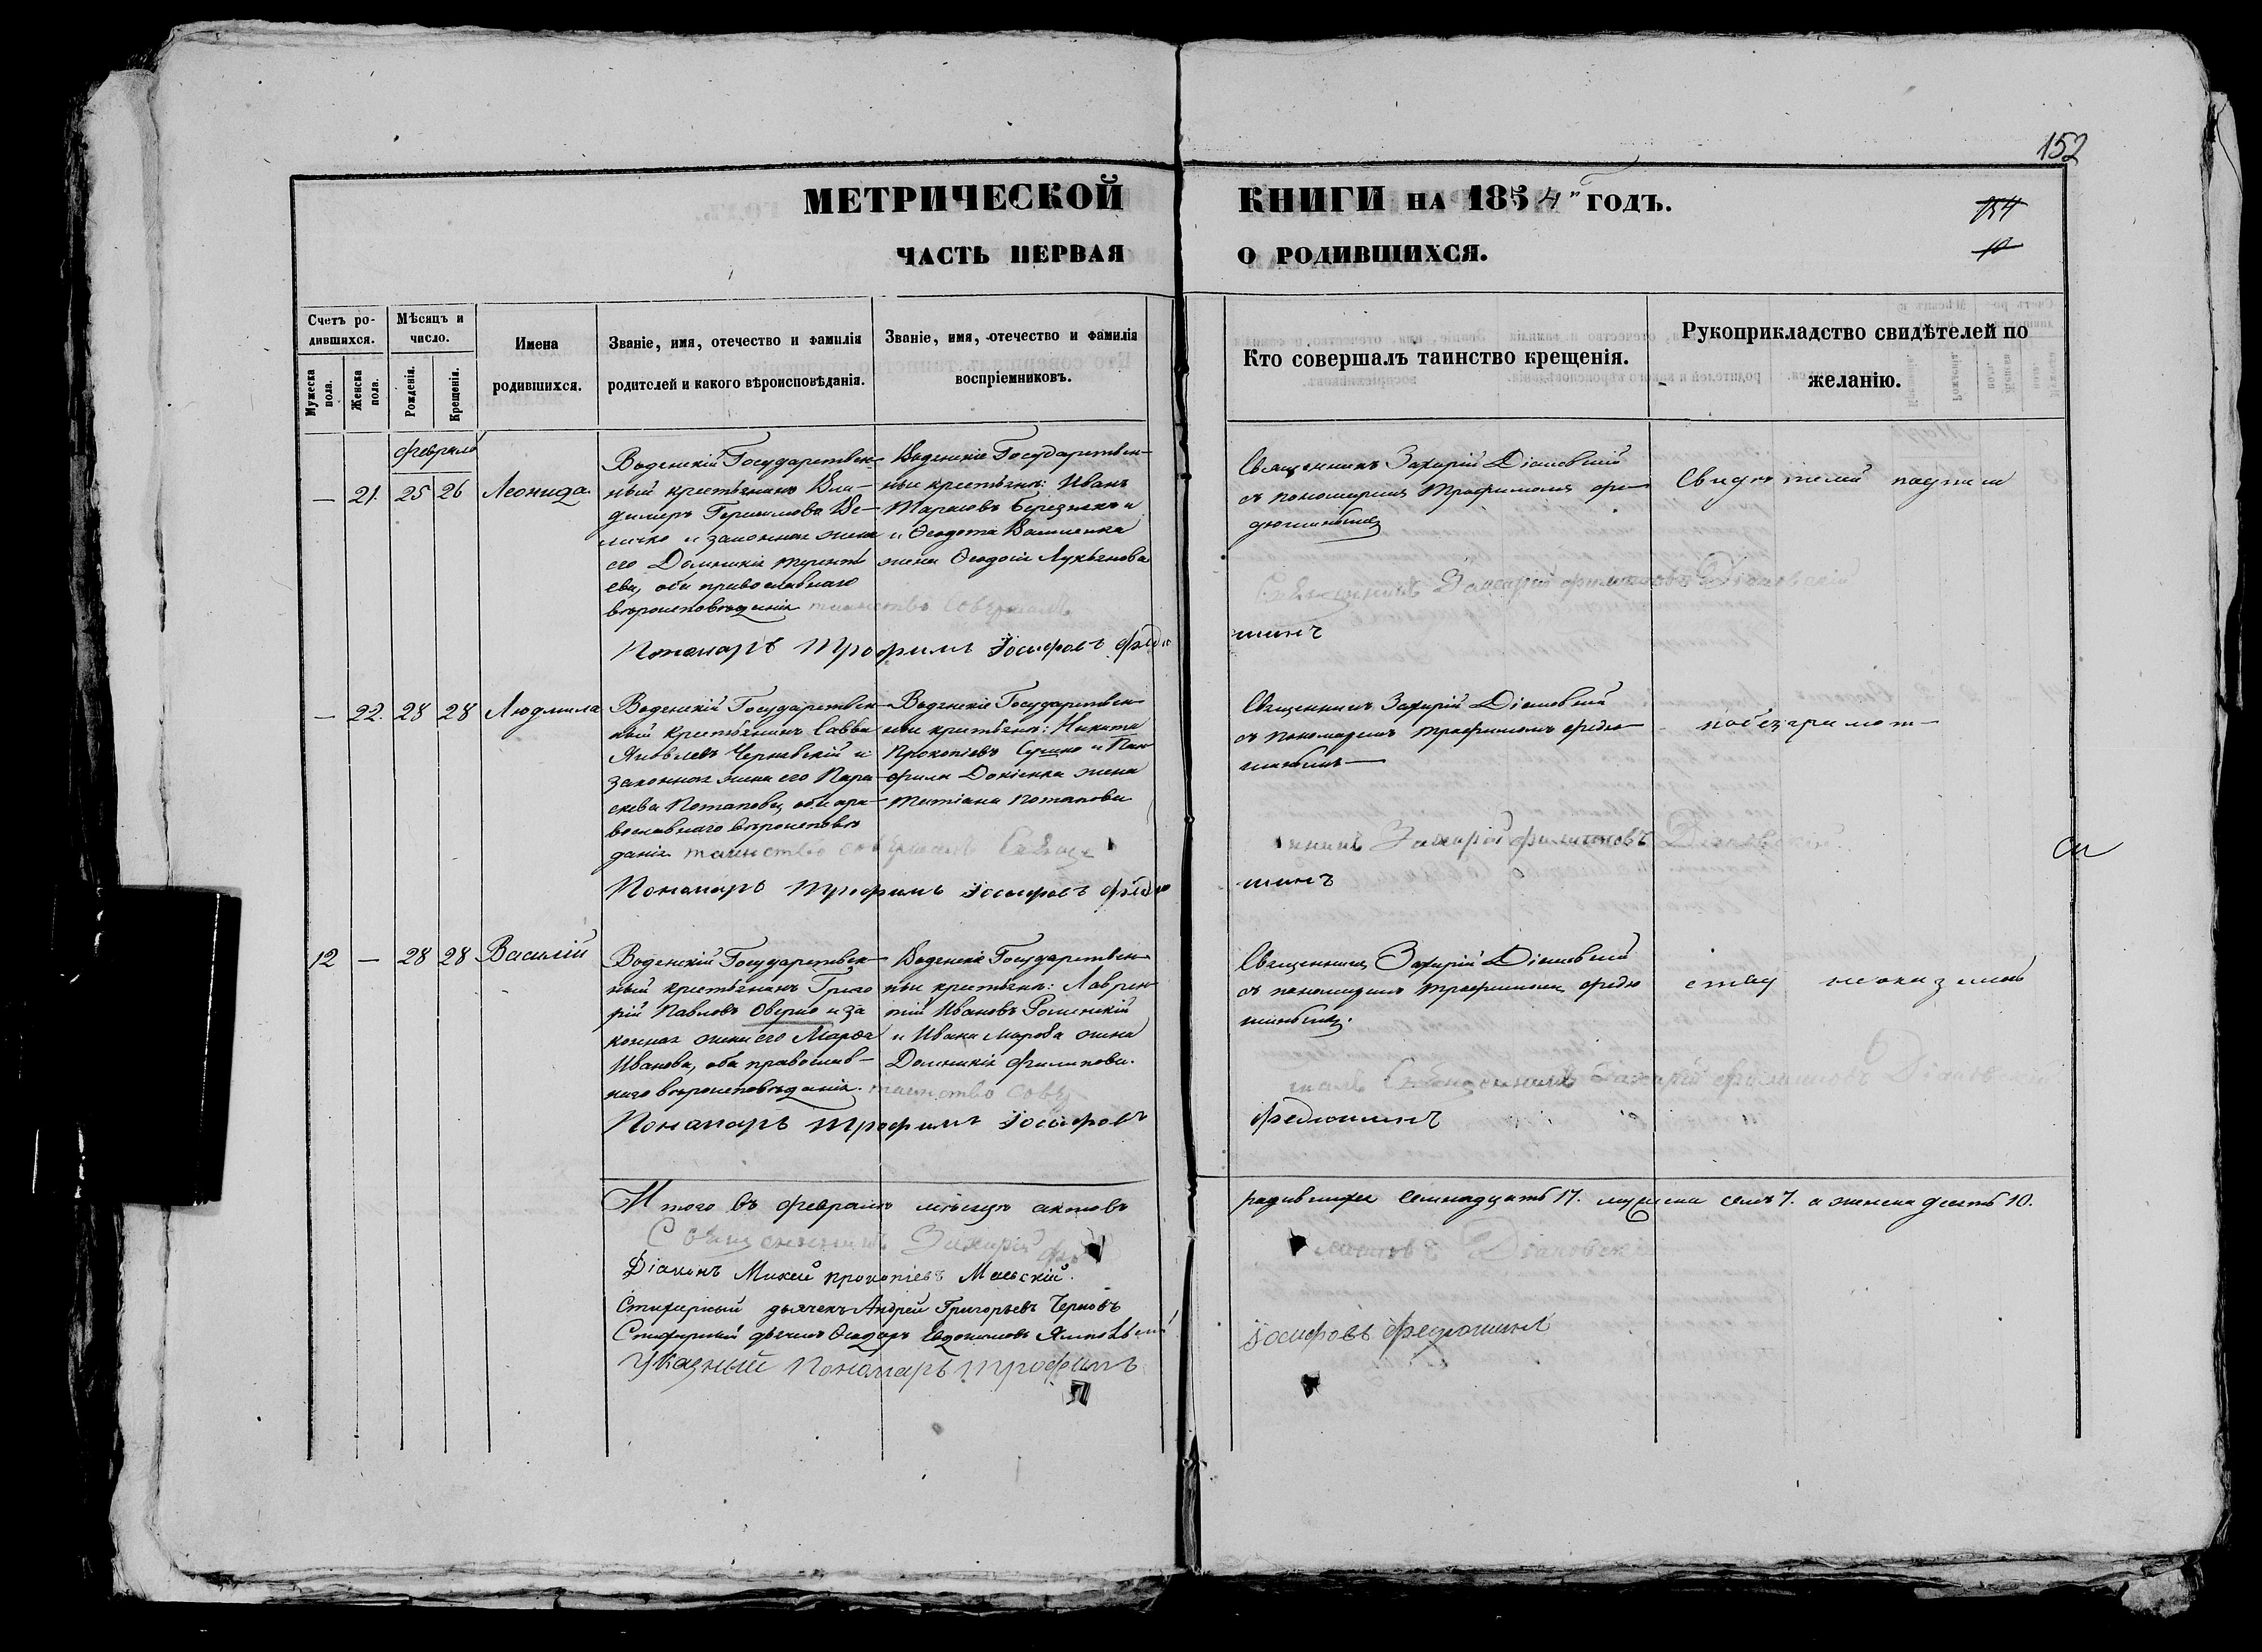 152
МЕТРИЧЕСКОЙ КНИГИ НА 1854 ГОДЪ.
154
10
ЧАСТЬ ПЕРВАЯ О РОДИВШИХСЯ.
Счетъ ро-
дившихся.
Мужеска пола.
Женска пола.
Мѣсяцъ и
число.
Рожденія.
Крещенія.
Имена
родившихся.
Званіе, имя, отечество и фамилія
родителей и какого вѣроисповѣданія.
Званіе, имя, отечество и фамилія
воспріемниковъ.
Кто совершалъ таинство крещенія.
Рукоприкладство свидѣтелей по
желанію.
февраля
— 21. 25 26 Леонида.
Воденскій Государствен-
ный крестьянинъ Вла-
димеръ Герасимовъ Ве-
личко и законная жена
его Домникія Терентi
ева, оба православнаго
вѣроисповѣданія таинство совершалъ
Воденскіе Государствен-
ные крестьяне: Иванъ
Тарасовъ Березнякъ и
и Ѳеодота жена Ѳеодосія Лукьянова
Священникъ Захарій Діановскій
съ пономаремъ Трофимомъ Фе-
дюшинымъ
Свидетелей подписи
Священникъ Захарій Филиповъ Діановскій
Понамаръ Трофимъ Іосифовъ Федю
шинъ
— 22. 28 28 Людмила
Воденскій Государствен-
ный крестьянинъ Савва
Яковлевъ Чернявскій и
законная жена его Пара-
скева Потапова, оба пра-
вославнаго вѣроисповѣ
данія таинство совершалъ Свяще
Воденскіе Государствен-
ные крестьяне: Никита
Прокопіевъ Сушко и Пан-
фила Докіенка жена
Татіана Потапова
Священникъ Захарій Діановскій
съ пономаремъ Трофимомъ Федю-
шинымъ
побезграмот-
нникъ Захарій Филиповъ Діановскій
Понамаръ Трофимъ Іосифовъ Федю
шинъ
12 — 28 28 Василій
Воденскій Государствен-
ный крестьянинъ Григо
рій Павловъ Оверко и за
конная жена его Марѳа
Иванова, оба православ-
наго вѣроисповѣданія. таинство совер
Воденскіе Государствен-
ные крестьяне: Лаврен-
тій Ивановъ Роменскій
и Ивана Мороза жена
Домникія Филипова.
Священникъ Захарій Діановскій
съ пономаремъ Трофимомъ Федю
шинымъ.
ству неоказалось
шалъ Священникъ Захарій Филиповъ Діановскій
Понамаръ Трофимъ Іосифовъ
Федюшинъ
Итого въ февралѣ мѣсяцѣ актовъ родившихся семнадцать 17. мужеска семь 7. а женска десять 10.
Священникъ Захарій Фи липовъ Діановскій
Діаконъ Михей Прокопіевъ Маевскій.
Стихирный дьячекъ Андрей Григорьевъ Черновъ
Стихирный дьячекъ Ѳеодоръ Евдокимовъ
Указный Понамаръ Трофимъ Іосифовъ Федюшинъ